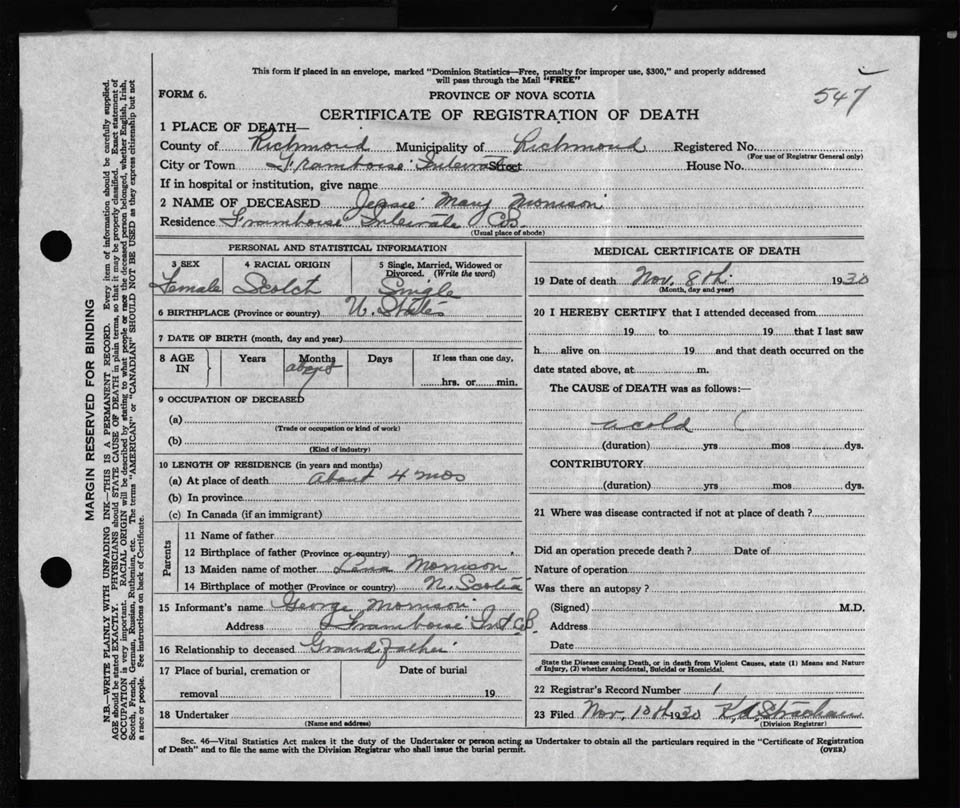 This form if placed in an envelope, marked "Dominion Statistics—Free, penalty for improper use, $300," and properly addressed
will pass through the Mail "FREE"
547
FORM 6.
PROVINCE OF NOVA SCOTIA
CERTIFICATE OF REGISTRATION OF DEATH
1 PLACE OF DEATH—
County of Richmond Municipality of Richmond Registered No.
(For use of Registrar General only)
City or Town Framboise Intervale Street House No.
If in hospital or institution, give name
2 NAME OF DECEASED Jessie Mary Morrison
Residence Framboise Intervale C.B.
(Usual place of abode)
PERSONAL AND STATISTICAL INFORMATION
3 SEX 4 RACIAL ORIGIN 5 Single, Married, Widowed or Divorced. (Write the word)
Female Scotch Single
6 BIRTHPLACE (Province or country) U. States
7 DATE OF BIRTH (month, day and year)
8 AGE IN Years Months Days If less than one day,
about 7
hrs. or min.
9 OCCUPATION OF DECEASED
(a)
(Trade or occupation or kind of work)
(b)
(Kind of industry)
10 LENGTH OF RESIDENCE (in years and months)
(a) At place of death About 4 mos
(b) In province
(c) In Canada (if an immigrant)
Parents
11 Name of father
12 Birthplace of father (Province or country)
13 Maiden name of mother Lena Morrison
14 Birthplace of mother (Province or country) N. Scotia
15 Informant's name George Morrison
Address Framboise Int C.B.
16 Relationship to deceased Grandfather
17 Place of burial, cremation or Date of burial
removal 19
18 Undertaker
(Name and address)
MEDICAL CERTIFICATE OF DEATH
19 Date of death Nov. 8th 1930
(Month, day and year)
20 I HEREBY CERTIFY that I attended deceased from
19 to 19 that I last saw
h alive on 19 and that death occurred on the
date stated above, at m.
The CAUSE of DEATH was as follows:—
a cold
(duration) yrs mos dys.
CONTRIBUTORY
(duration) yrs mos dys.
21 Where was disease contracted if not at place of death?
Did an operation precede death? Date of
Nature of operation
Was there an autopsy?
(Signed) M.D.
Address
Date
State the Disease causing Death, or in death from Violent Causes, state (1) Means and Nature
of Injury, (2) whether Accidental, Suicidal or Homicidal.
22 Registrar's Record Number 1
23 Filed Nov. 10th 1930 K A Strachan
(Division Registrar)
Sec. 46—Vital Statistics Act makes it the duty of the Undertaker or person acting as Undertaker to obtain all the particulars required in the "Certificate of Registration
of Death" and to file the same with the Division Registrar who shall issue the burial permit.
(OVER)
MARGIN RESERVED FOR BINDING
N.B.—WRITE PLAINLY WITH UNFADING INK—THIS IS A PERMANENT RECORD. Every item of information should be carefully supplied.
AGE should be stated EXACTLY. PHYSICIANS should STATE CAUSE OF DEATH in plain terms, so that it may be properly classified. Exact statement of
OCCUPATION is very important. RACIAL ORIGIN will be described by stating to what people or race the deceased person belonged, whether English, Irish,
Scotch, French, German, Russian, Ruthenian, etc. The terms "AMERICAN" or "CANADIAN" SHOULD NOT BE USED as they express citizenship but not
a race or people. See instructions on back of Certificate.